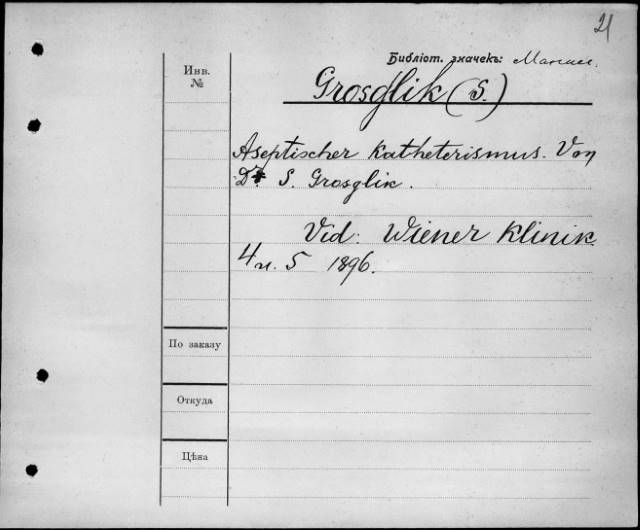 21
Библіот. значекъ:
Инв.
№
Grosglik (S.)
Aseptischer Katheterismus. Von
Dr. S. Grosglik.
Vid: Wiener Klinik
4 u. 5 1896.
По заказу
Откуда
Цѣна